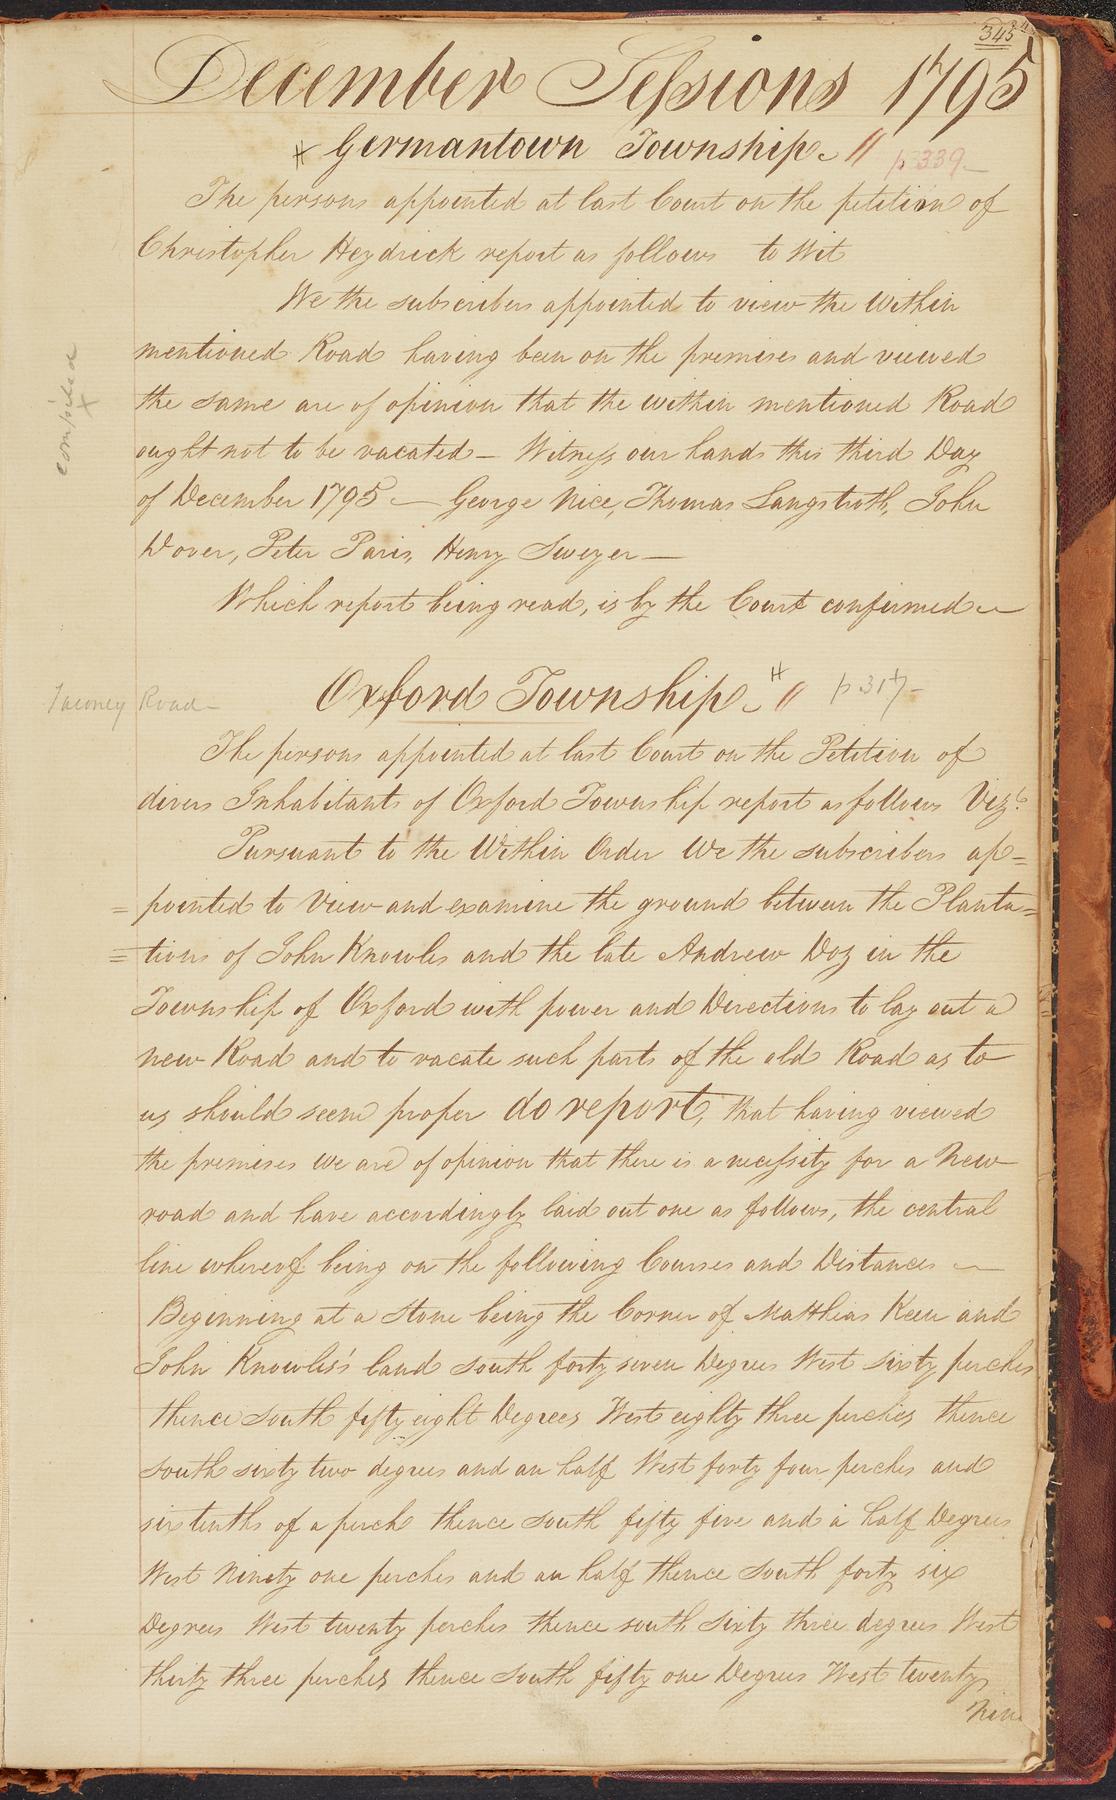 345
December Sessions 1795
Germantown Township. // p 339
The persons appointed at last Court on the petition of
Christopher Heydrick report as follows to Wit
We the subscribers appointed to view the Within
mentioned Road having been on the premises and viewed
the same are of opinion that the within mentioned Road
ought not to be vacated — Witness our hands this third Day
of December 1795 — George Nice, Thomas Langstroth, John
Dover, Peter Paris, Henry Sweyer —
Which report being read, is by the Court confirmed —
compiled
x
Tacony Road
Oxford Township. // p 317
The persons appointed at last Court on the Petition of
divers Inhabitants of Oxford Township report as follows Vizt.
Pursuant to the Within Order We the subscribers ap=
=pointed to View and examine the ground between the Planta=
=tions of John Knowles and the late Andrew Doz in the
Township of Oxford with power and Directions to lay out a
new Road and to vacate such parts of the old Road as to
us should seem proper do report, that having viewed
the premises We are of opinion that there is a necessity for a New
road and have accordingly laid out one as follows, the central
line whereof being on the following Courses and Distances —
Beginning at a Stone being the Corner of Matthias Keen and
John Knowles's land South forty seven Degrees West sixty perches
thence South fifty eight Degrees West eighty three perches thence
South sixty two degrees and an half West forty four perches and
six tenths of a perch thence South fifty five and a half Degrees
West Ninety one perches and an half thence South forty six
Degrees West twenty perches thence south Sixty three degrees West
thirty three perches thence South fifty one Degrees West twenty
Nine